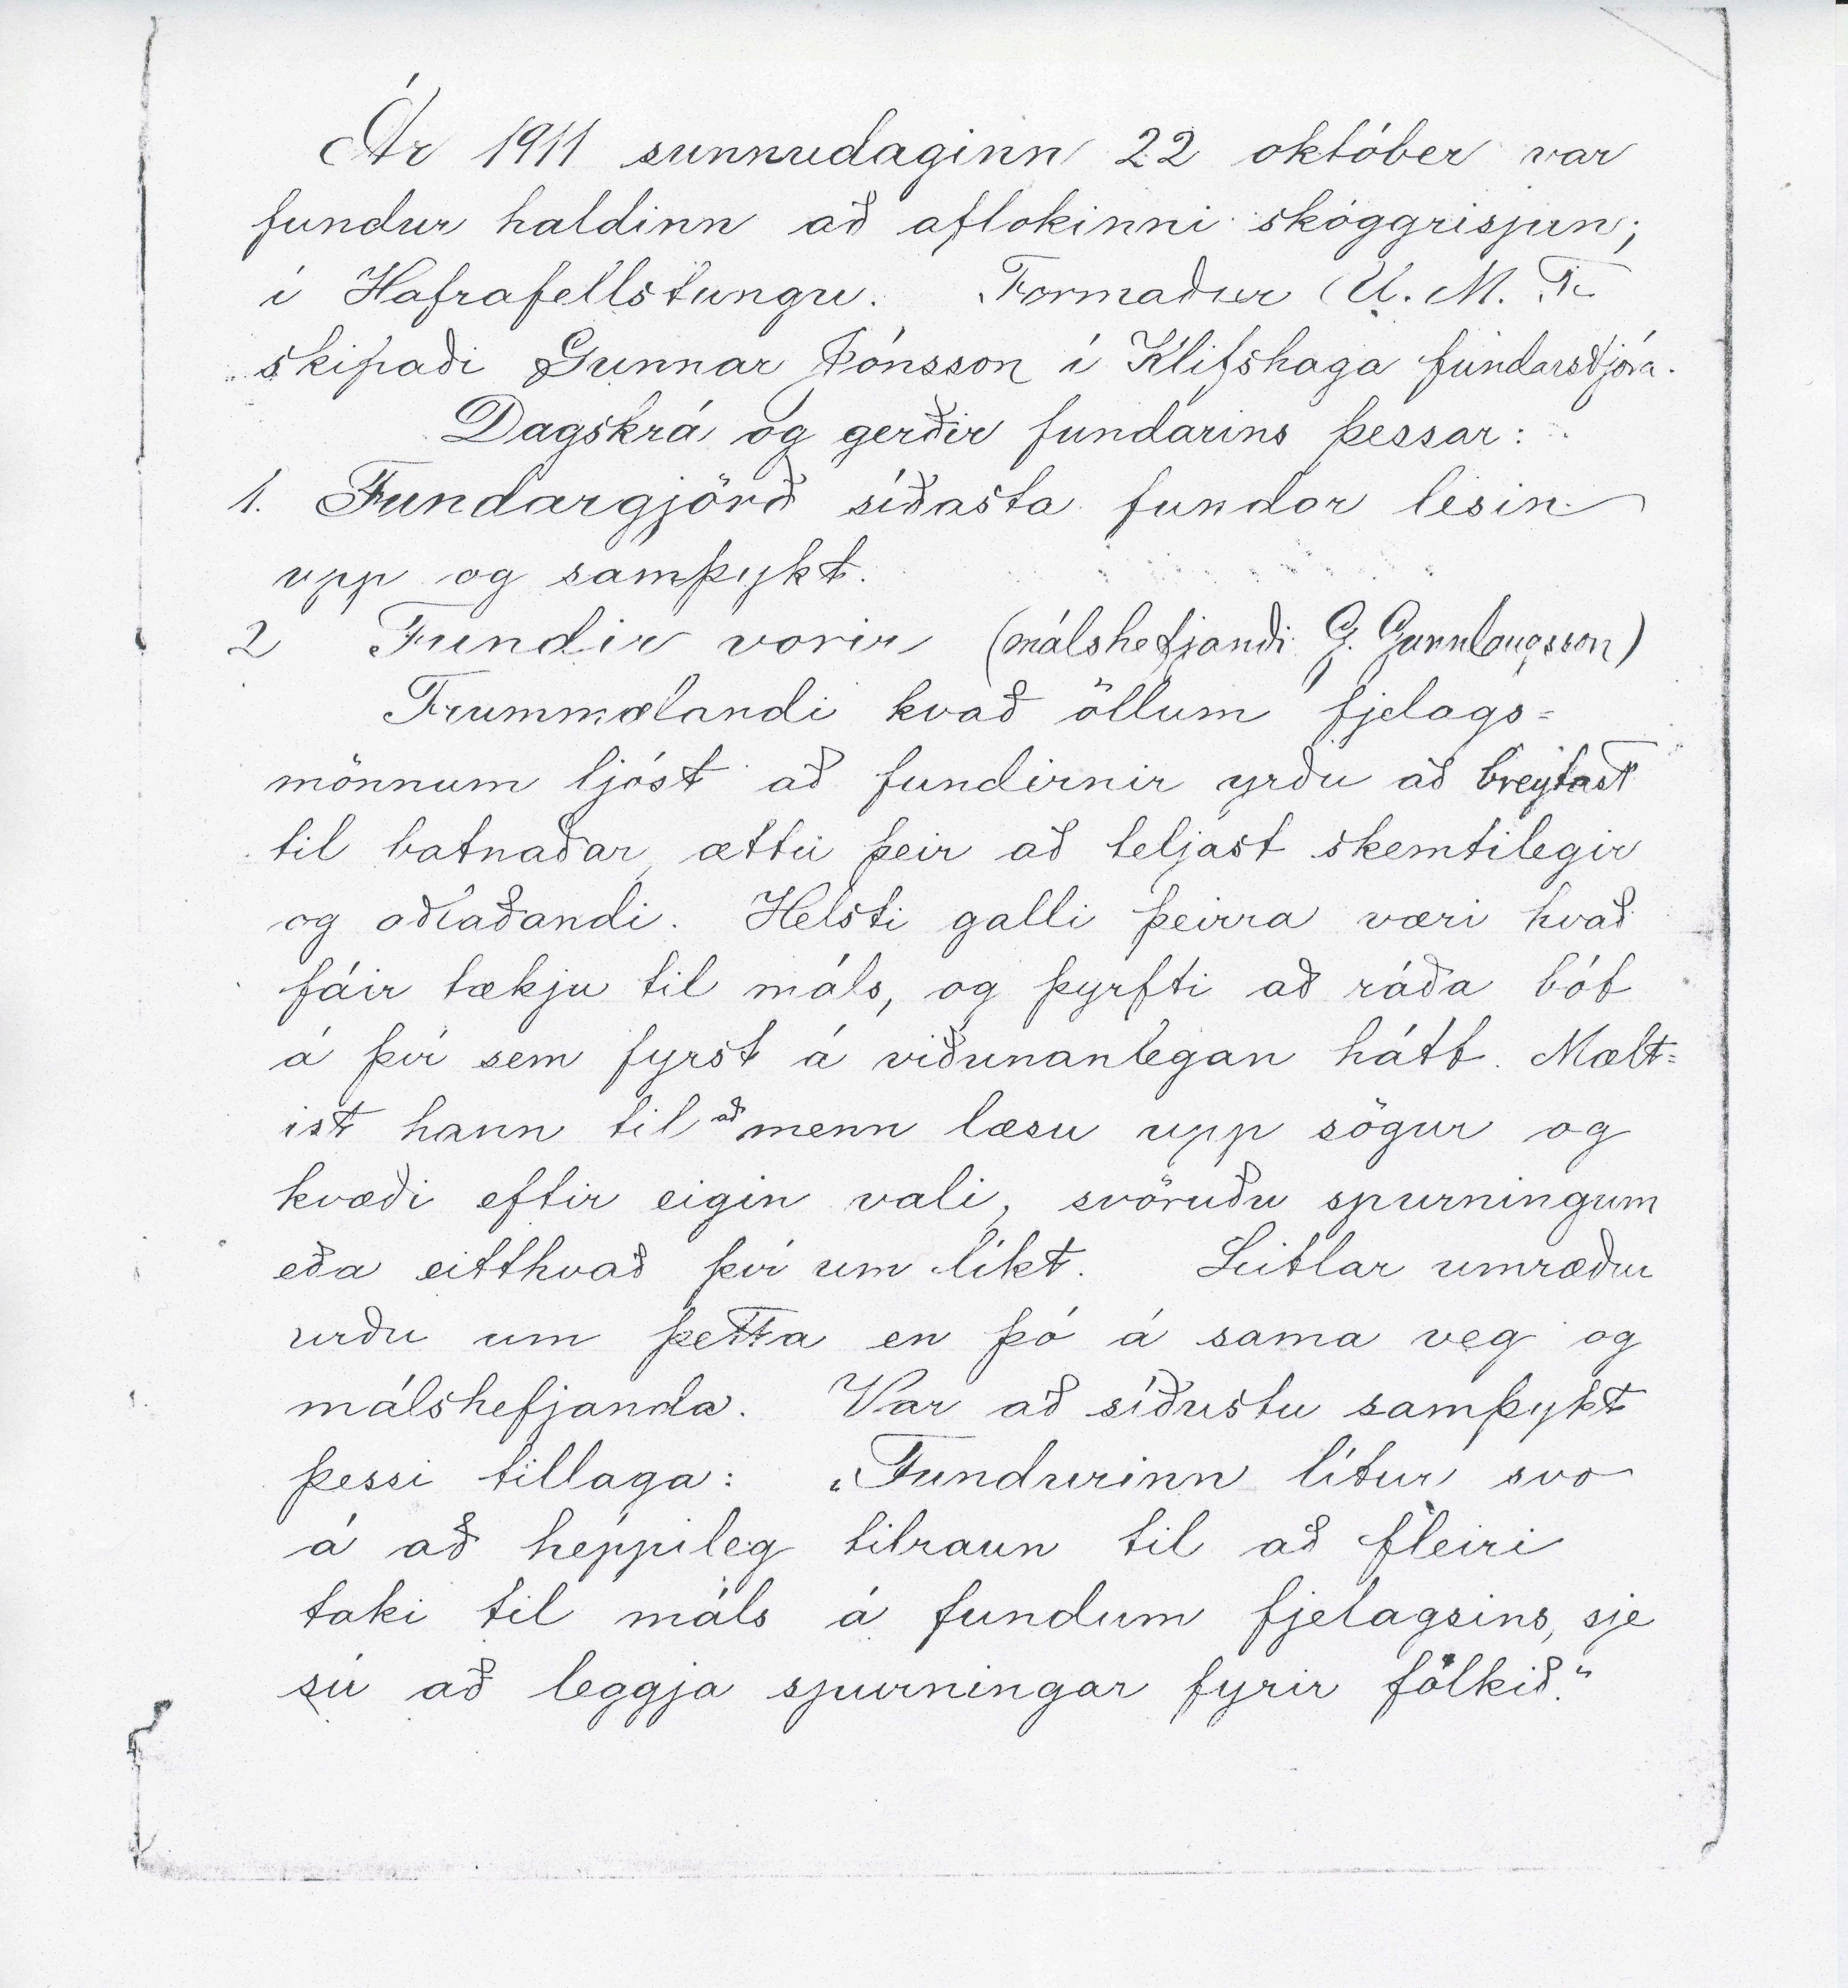 Ár 1911 sunnudaginn 22 október var
fundur haldinn að aflokinni skóggrisjun;
í Hafrafellstungu. Formaður U. M. F.
skipaði Gunnar Jónsson í Klifshaga fundarstjóra.
Dagskrá og gerðir fundarins þessar:
1. Fundargjörð síðasta fundar lesin
upp og samþykt.
2 Fundir vorir (málshefjandi G. Gunnlaugsson)
Frummælandi kvað öllum fjelags=
mönnum ljóst að fundirnir yrðu að breytast
til batnaðar, ættu þeir að teljast skemtilegir
og aðlaðandi. Helsti galli þeirra væri hvað
fáir tækju til máls, og þyrfti að ráða bót
á því sem fyrst á viðunanlegan hátt. Mælt=
ist hann til að menn læsu upp sögur og
kvæði eftir eigin vali, svöruðu spurningum
eða eitthvað því um líkt. Litlar umræður
urðu um þetta en þó á sama veg og
málshefjanda. Var að síðustu samþykt
þessi tillaga: „Fundurinn lítur svo
á að heppileg tilraun til að fleiri
taki til máls á fundum fjelagsins, sje
sú að leggja spurningar fyrir fólkið."